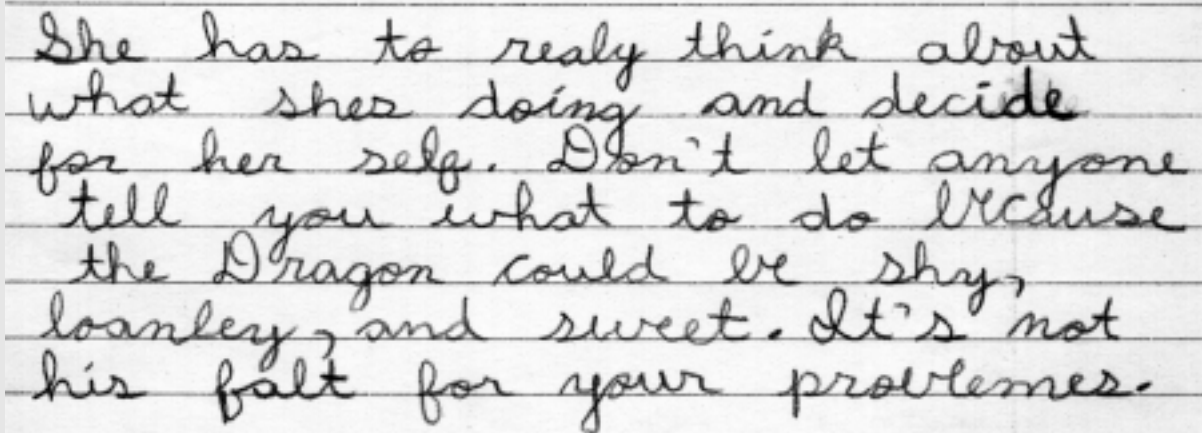 She has to realy think about
what shes doing and decide
for her self. Don't let anyone
tell you what to do because
the Dragon could be shy,
loanley, and sweet. It's not
his falt for your problemes.